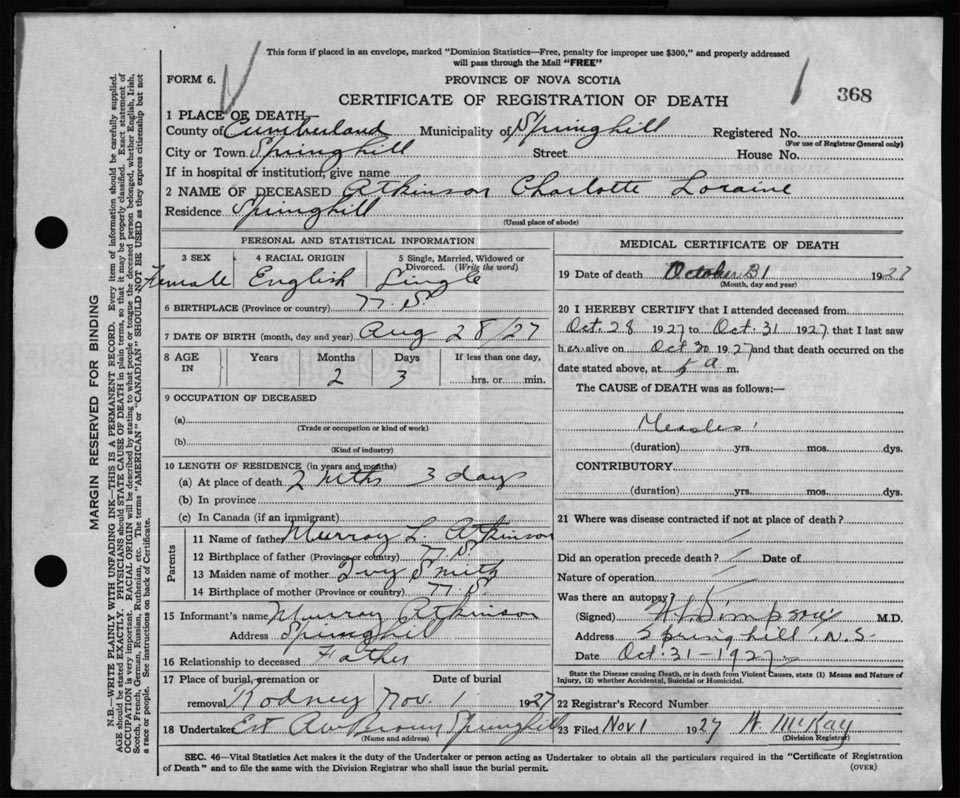 This form if placed in an envelope, marked "Dominion Statistics—Free, penalty for improper use $300," and properly addressed
will pass through the Mail "FREE"
FORM 6.
PROVINCE OF NOVA SCOTIA
CERTIFICATE OF REGISTRATION OF DEATH
368
1 PLACE OF DEATH
County of Cumberland Municipality of Springhill Registered No.
(For use of Registrar General only)
City or Town Springhill Street House No.
If in hospital or institution, give name
2 NAME OF DECEASED Atkinson Charlotte Loraine
Residence Springhill
(Usual place of abode)
PERSONAL AND STATISTICAL INFORMATION
3 SEX 4 RACIAL ORIGIN 5 Single, Married, Widowed or
Divorced. (Write the word)
Female English Single
6 BIRTHPLACE (Province or country) N.S.
7 DATE OF BIRTH (month, day and year) Aug 28/27
8 AGE IN Years Months Days If less than one day,
2 3 hrs. or min.
9 OCCUPATION OF DECEASED
(a)
(Trade or occupation or kind of work)
(b)
(Kind of industry)
10 LENGTH OF RESIDENCE (in years and months)
(a) At place of death 2 mths 3 days
(b) In province
(c) In Canada (if an immigrant)
Parents
11 Name of father Murray L. Atkinson
12 Birthplace of father (Province or country) N.S.
13 Maiden name of mother Ivy Smith
14 Birthplace of mother (Province or country) N.S.
15 Informant's name Murray Atkinson
Address Springhill
16 Relationship to deceased Father
17 Place of burial, cremation or Date of burial
removal Rodney Nov. 1 1927
18 Undertaker Est Springhill
(Name and address)
MEDICAL CERTIFICATE OF DEATH
19 Date of death October 31 1927
(Month, day and year)
20 I HEREBY CERTIFY that I attended deceased from
Oct. 28 1927 to Oct. 31 1927, that I last saw
her alive on Oct 30 1927 and that death occurred on
date stated above, at 5 a m.
The CAUSE OF DEATH was as follows:—
Measles
(duration) yrs. mos. dys.
CONTRIBUTORY
(duration) yrs. mos. dys.
21 Where was disease contracted if not at place of death?
Did an operation precede death? Date of
Nature of operation
Was there an autopsy?
(Signed) Simpson M.D.
Address Springhill, N.S.
Date Oct. 31-1927
State the Disease causing Death, or in death from Violent Causes, state (1) Means and Nature of
Injury, (2) whether Accidental, Suicidal or Homicidal.
22 Registrar's Record Number
23 Filed Nov 1 1927 W. McKay
(Division Registrar)
SEC. 46—Vital Statistics Act makes it the duty of the Undertaker or person acting as Undertaker to obtain all the particulars required in the "Certificate of Registration
of Death" and to file the same with the Division Registrar who shall issue the burial permit.
(OVER)
MARGIN RESERVED FOR BINDING
N.B.—WRITE PLAINLY WITH UNFADING INK—THIS IS A PERMANENT RECORD. Every item of information should be carefully supplied.
AGE should be stated EXACTLY. PHYSICIANS should STATE CAUSE OF DEATH in plain terms, so that it may be properly classified. Exact statement of
OCCUPATION is very important. RACIAL ORIGIN will be described by stating to what people or tongue the deceased person belonged, whether English, Irish,
Scotch, French, German, Russian, Ruthenian, etc. The terms "AMERICAN" or "CANADIAN" SHOULD NOT BE USED as they express citizenship but not
a race or people. See instructions on back of Certificate.